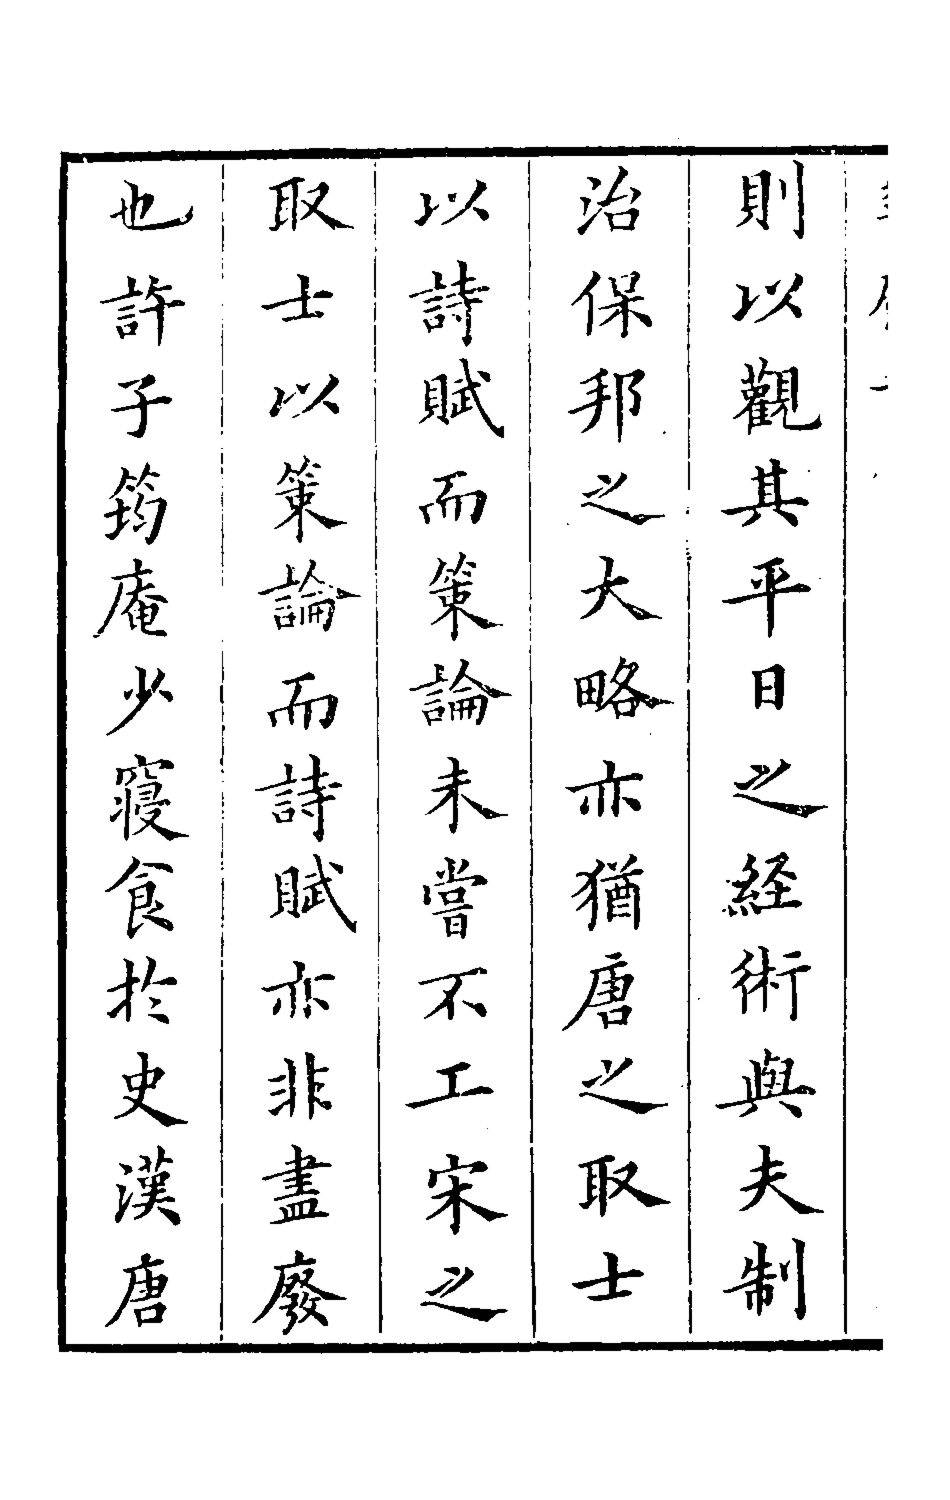 則以觀其平日之経術與夫制
治保邦之大略亦猶唐之取士
以詩賦而策論未嘗不工宋之
取士以策論而詩賦亦非盡廢
也許子筠庵少寢食於史漢唐